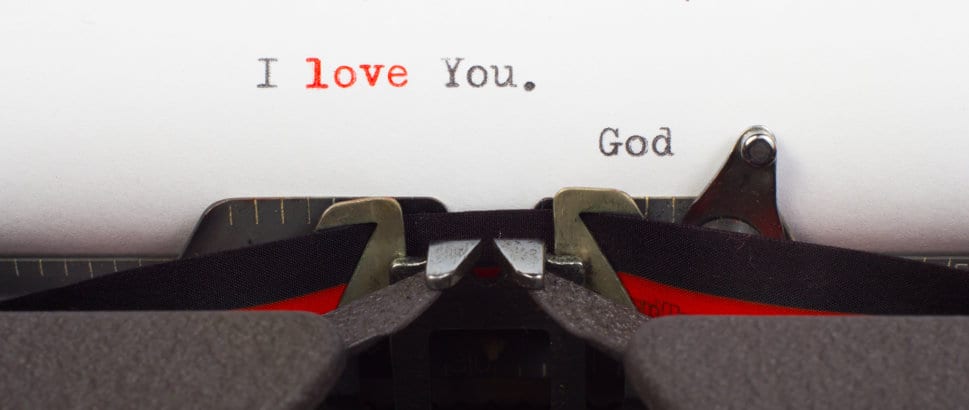 I love You.
God